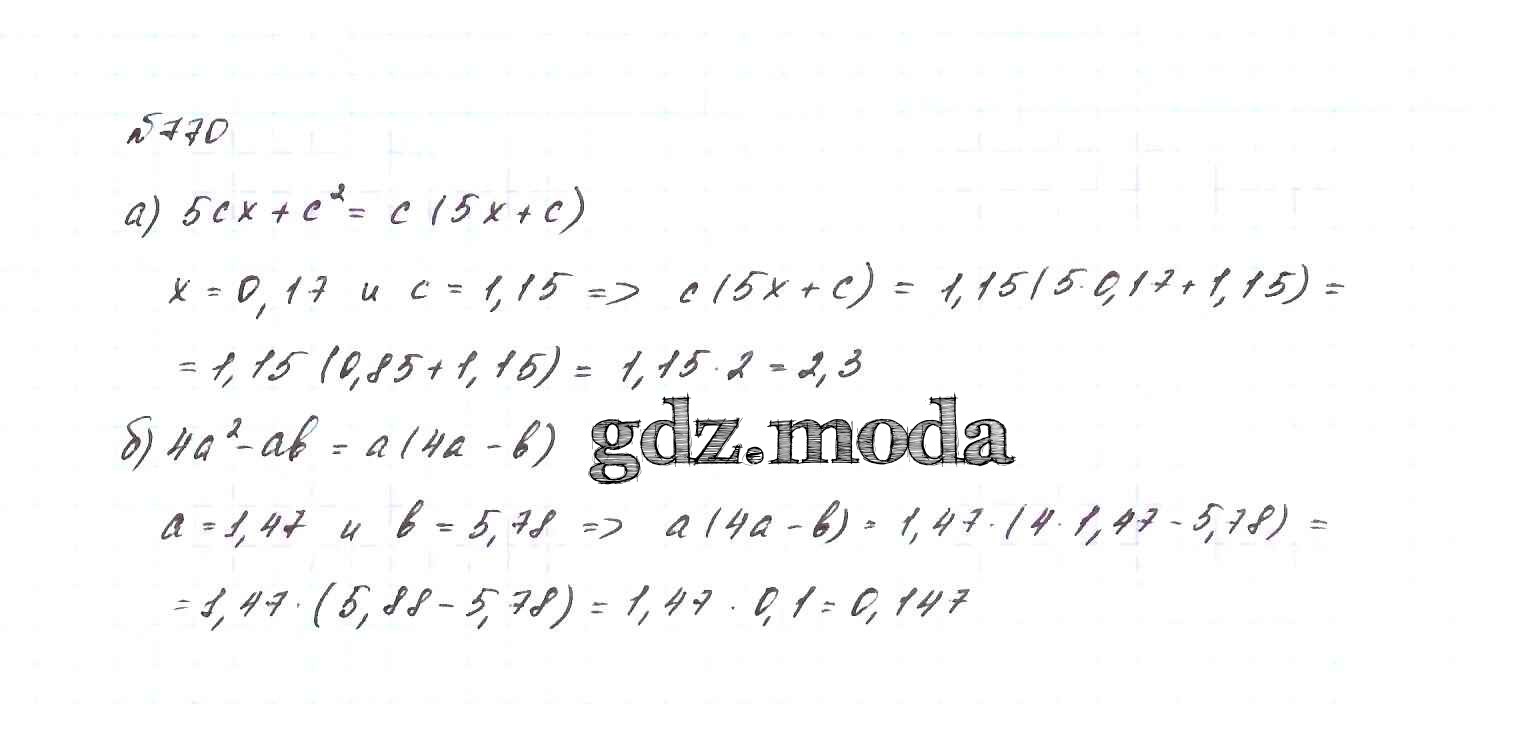 №770
а) 5cx + c² = c(5x + c)
x = 0,17 и c = 1,15 => c(5x + c) = 1,15(5·0,17 + 1,15) =
= 1,15(0,85 + 1,15) = 1,15·2 = 2,3
б) 4a² - ab = a(4a - b)
gdz.moda
a = 1,47 и b = 5,78 => a(4a - b) = 1,47·(4·1,47 - 5,78) =
= 1,47·(5,88 - 5,78) = 1,47·0,1 = 0,147